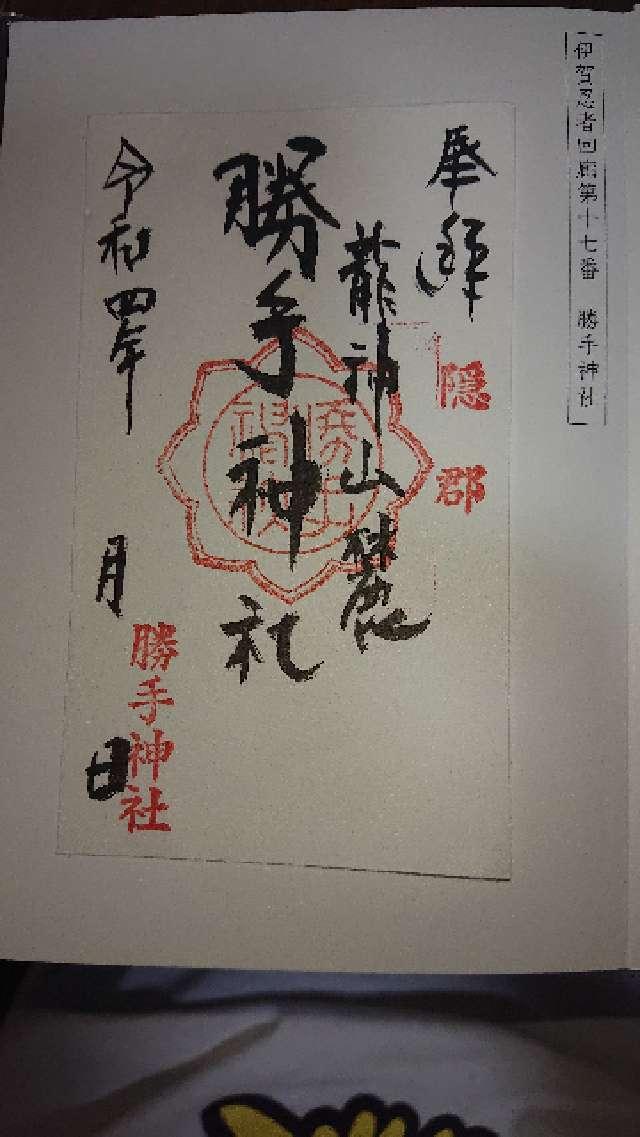 伊賀忍者回廊第十七番 勝手神社
奉拝
隠郡
龍神山麓
勝手神社
令和四年 月 日
勝手神社